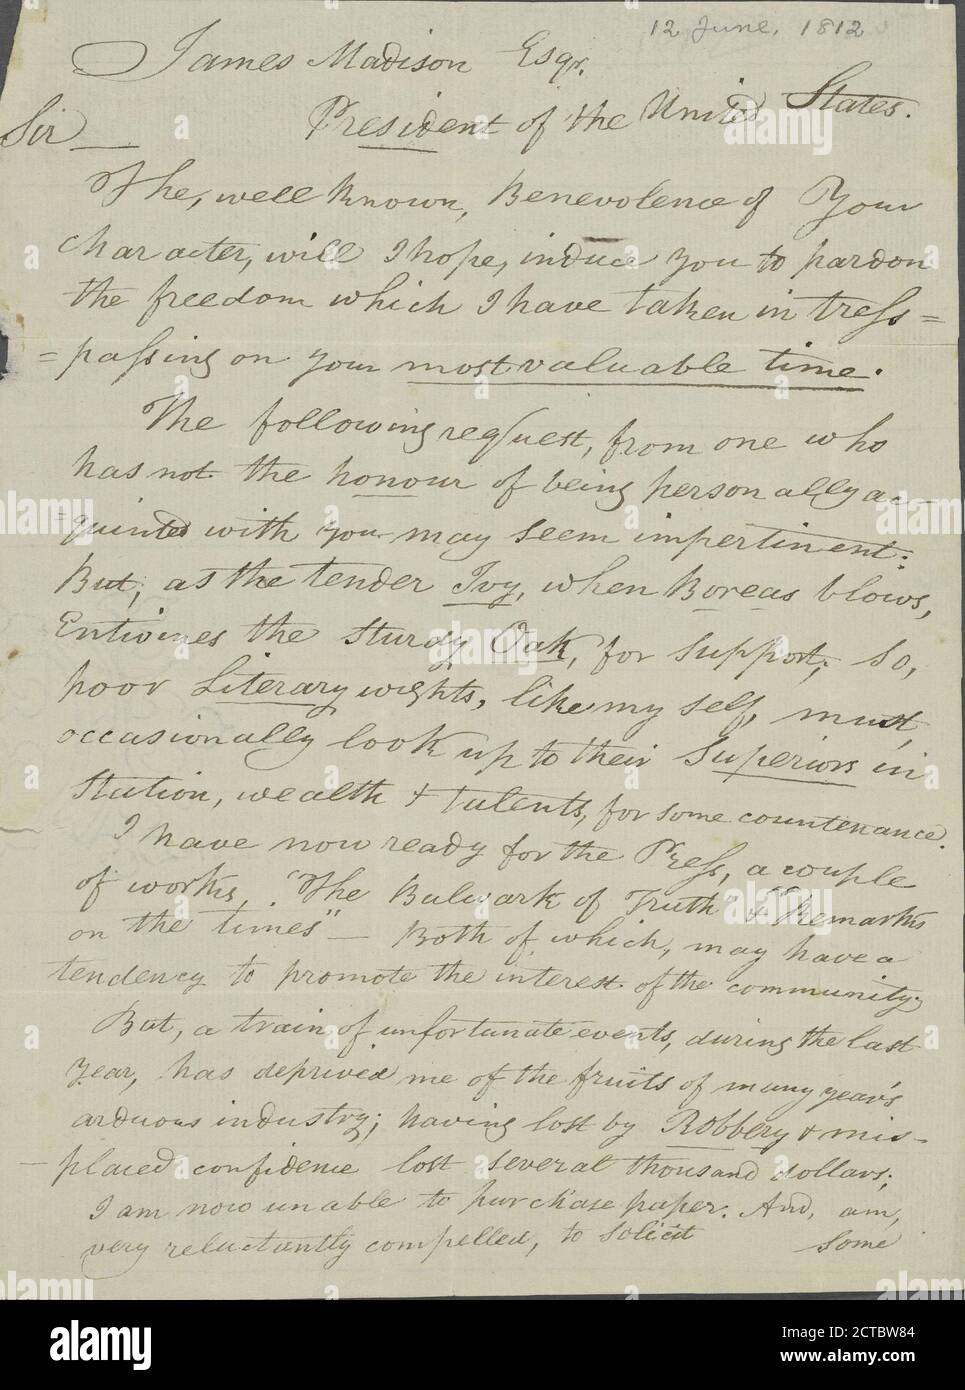 12 June, 1812
James Madison Esqr.
President of the United States.
Sir
The, well known, Benevolence of Your
character, will I hope, induce you to pardon
the freedom which I have taken in tress=
=passing on your most valuable time.
The following request, from one who
has not the honour of being personally ac-
=quinted with you may seem impertinent:
But, as the tender Ivy, when Boreas blows,
Entwines the sturdy Oak, for support; so,
poor Literary wights, like my self, must,
occasionally look up to their Superiors in
Station, wealth & talents, for some countenance.
I have now ready for the Press, a couple
of works, "The Bulwark of Truth" & "Remarks
on the times" — Both of which, may have a
tendency to promote the interest of the community;
But, a train of unfortunate events, during the last
Year, has deprived me of the fruits of many year's
arduous industry; having lost by Robbery & mis-
-placed confidence lost several thousand dollars;
I am now unable to purchase paper. And, am,
very reluctantly compelled, to solicit some
alamy
Image ID: 2CTBW84
www.alamy.com